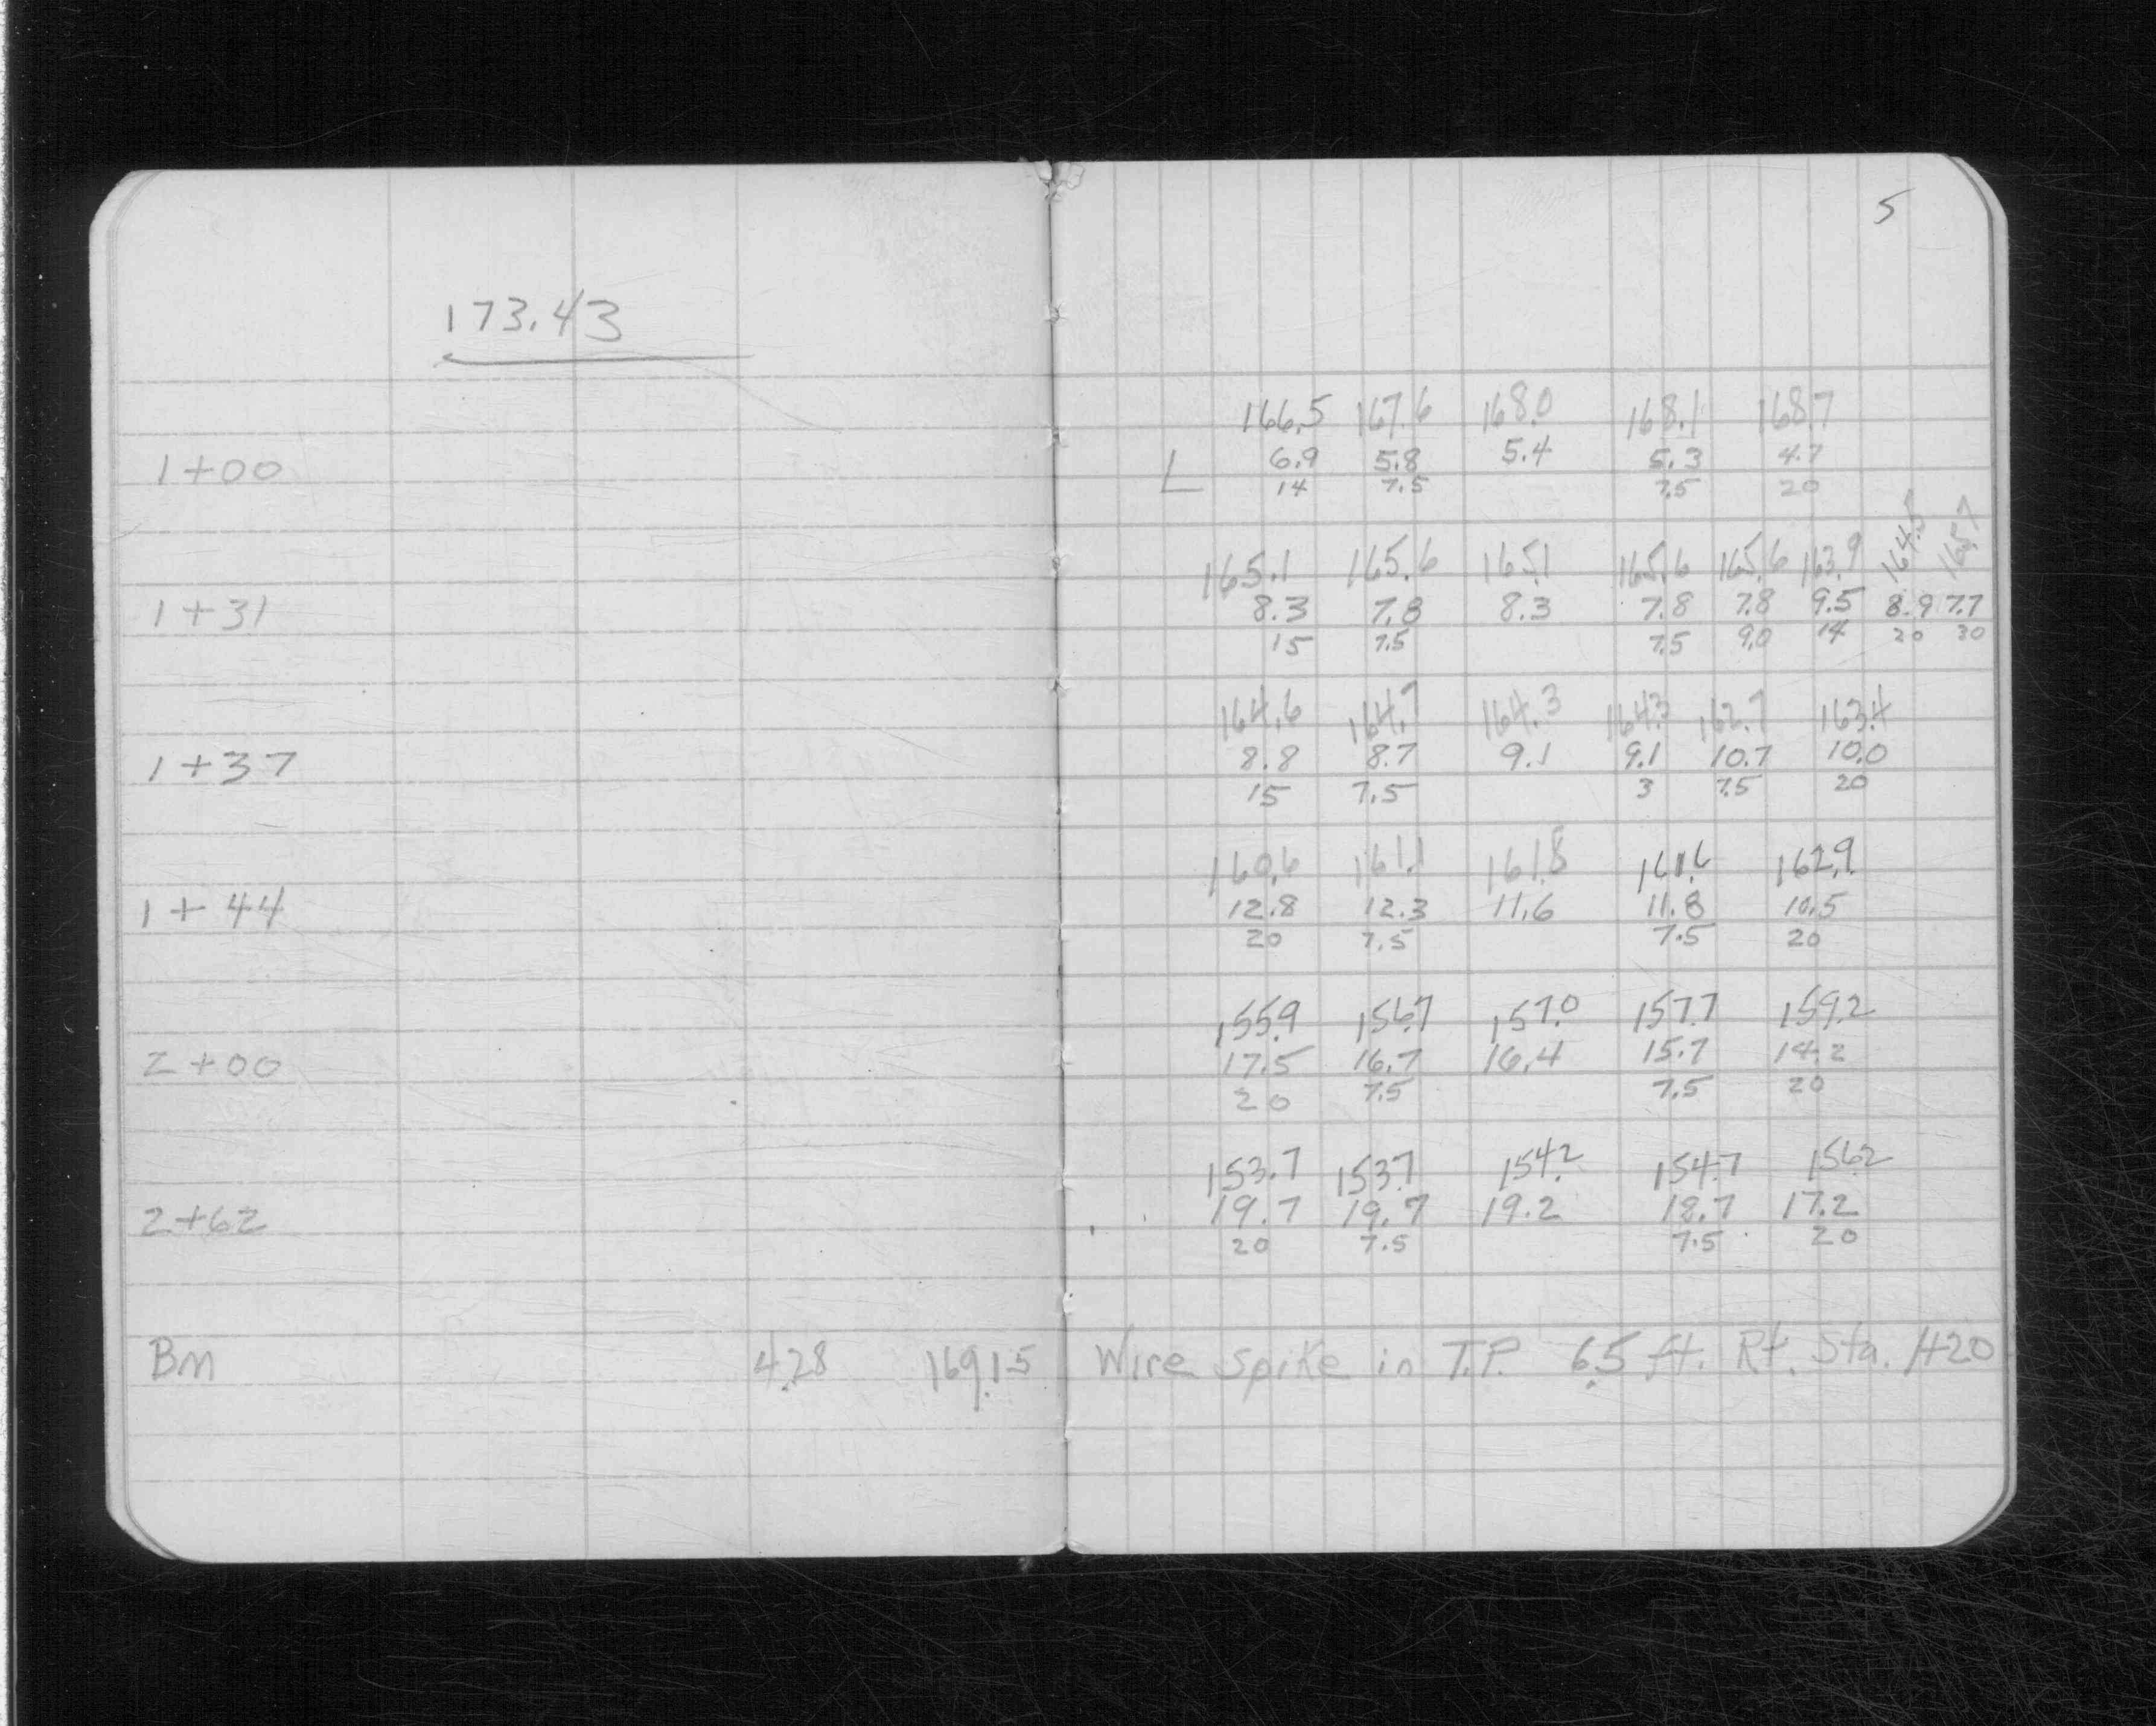 5
173.43
166.5 167.6 168.0 168.1 168.7
1+00 L 6.9 5.8 5.4 5.3 4.7
14 7.5 7.5 20
165.1 165.6 165.1 165.6 165.6 163.9 164.5 165.7
1+31 8.3 7.8 8.3 7.8 7.8 9.5 8.9 7.7
15 7.5 7.5 9.0 14 20 30
164.6 164.7 164.3 164.3 162.7 163.4
1+37 8.8 8.7 9.1 9.1 10.7 10.0
15 7.5 3 7.5 20
160.6 161.1 161.8 161.6 162.9
1+44 12.8 12.3 11.6 11.8 10.5
20 7.5 7.5 20
155.9 156.7 157.0 157.7 159.2
2+00 17.5 16.7 16.4 15.7 14.2
20 7.5 7.5 20
153.7 153.7 154.2 154.7 156.2
2+62 19.7 19.7 19.2 18.7 17.2
20 7.5 7.5 20
BM 4.28 169.15 Wire Spike in T.P. 6.5 ft. Rt. Sta. 1+20